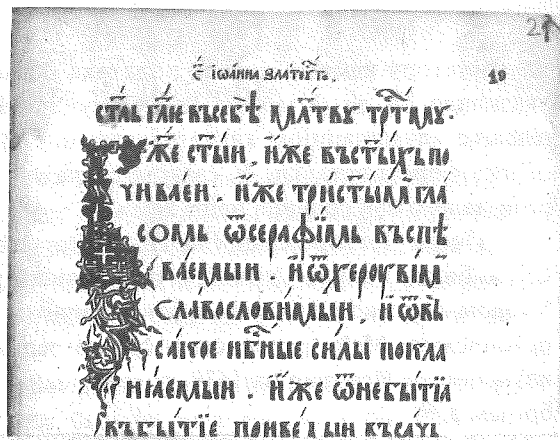 С҃ ІѠА́ННА ЗЛАТОꙊ́СТ. 19
СТ҃ЛЬ ГЛ҃ЕТ ВЪСЕБѢ̀ МЛ҃ТВꙊ ТРСТ҃МꙊ.
Б҃ЖЕ СТ҃ЫИ. И҆́ЖЕ ВЪСТ҃Ы́ХЪ ПО
ЧИВА́ЕИ. И҆́ЖЕ ТРИСТ҃Ы́МЪ ГЛА́
СОМЬ Ѿ СЕРАФИ́МЬ ВЪСПѢ
ВА́ЕМЫИ. И҆ Ѿ ХЕРОꙊВИ́МЪ
СЛАВОСЛОВИ́МЫИ. И҆ Ѿ ВЬ
САКОЕ НБ҃НЫЕ СИ́ЛЫ ПОКЛА
НѦ́ЕМЫИ. И҆́ЖЕ Ѿ НЕБЫТЇА̀
ВЪБЫТЇЕ ПРИВЕ́ДЫИ ВЪСА́ЧЬ